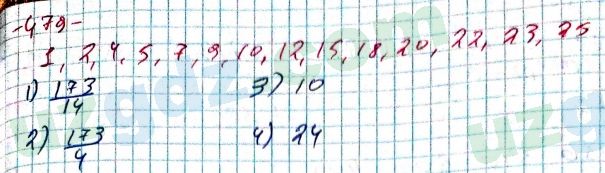 -479-
1, 2, 4, 5, 7, 9, 10, 12, 15, 18, 20, 22, 23, 25
1) 173/14 3) 10
2) 173/4 4) 24